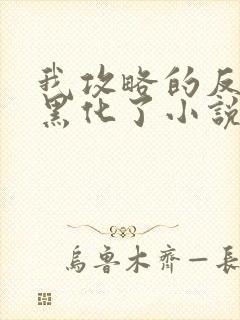 我攻略的反
黑化了小說
烏魯木齊—長